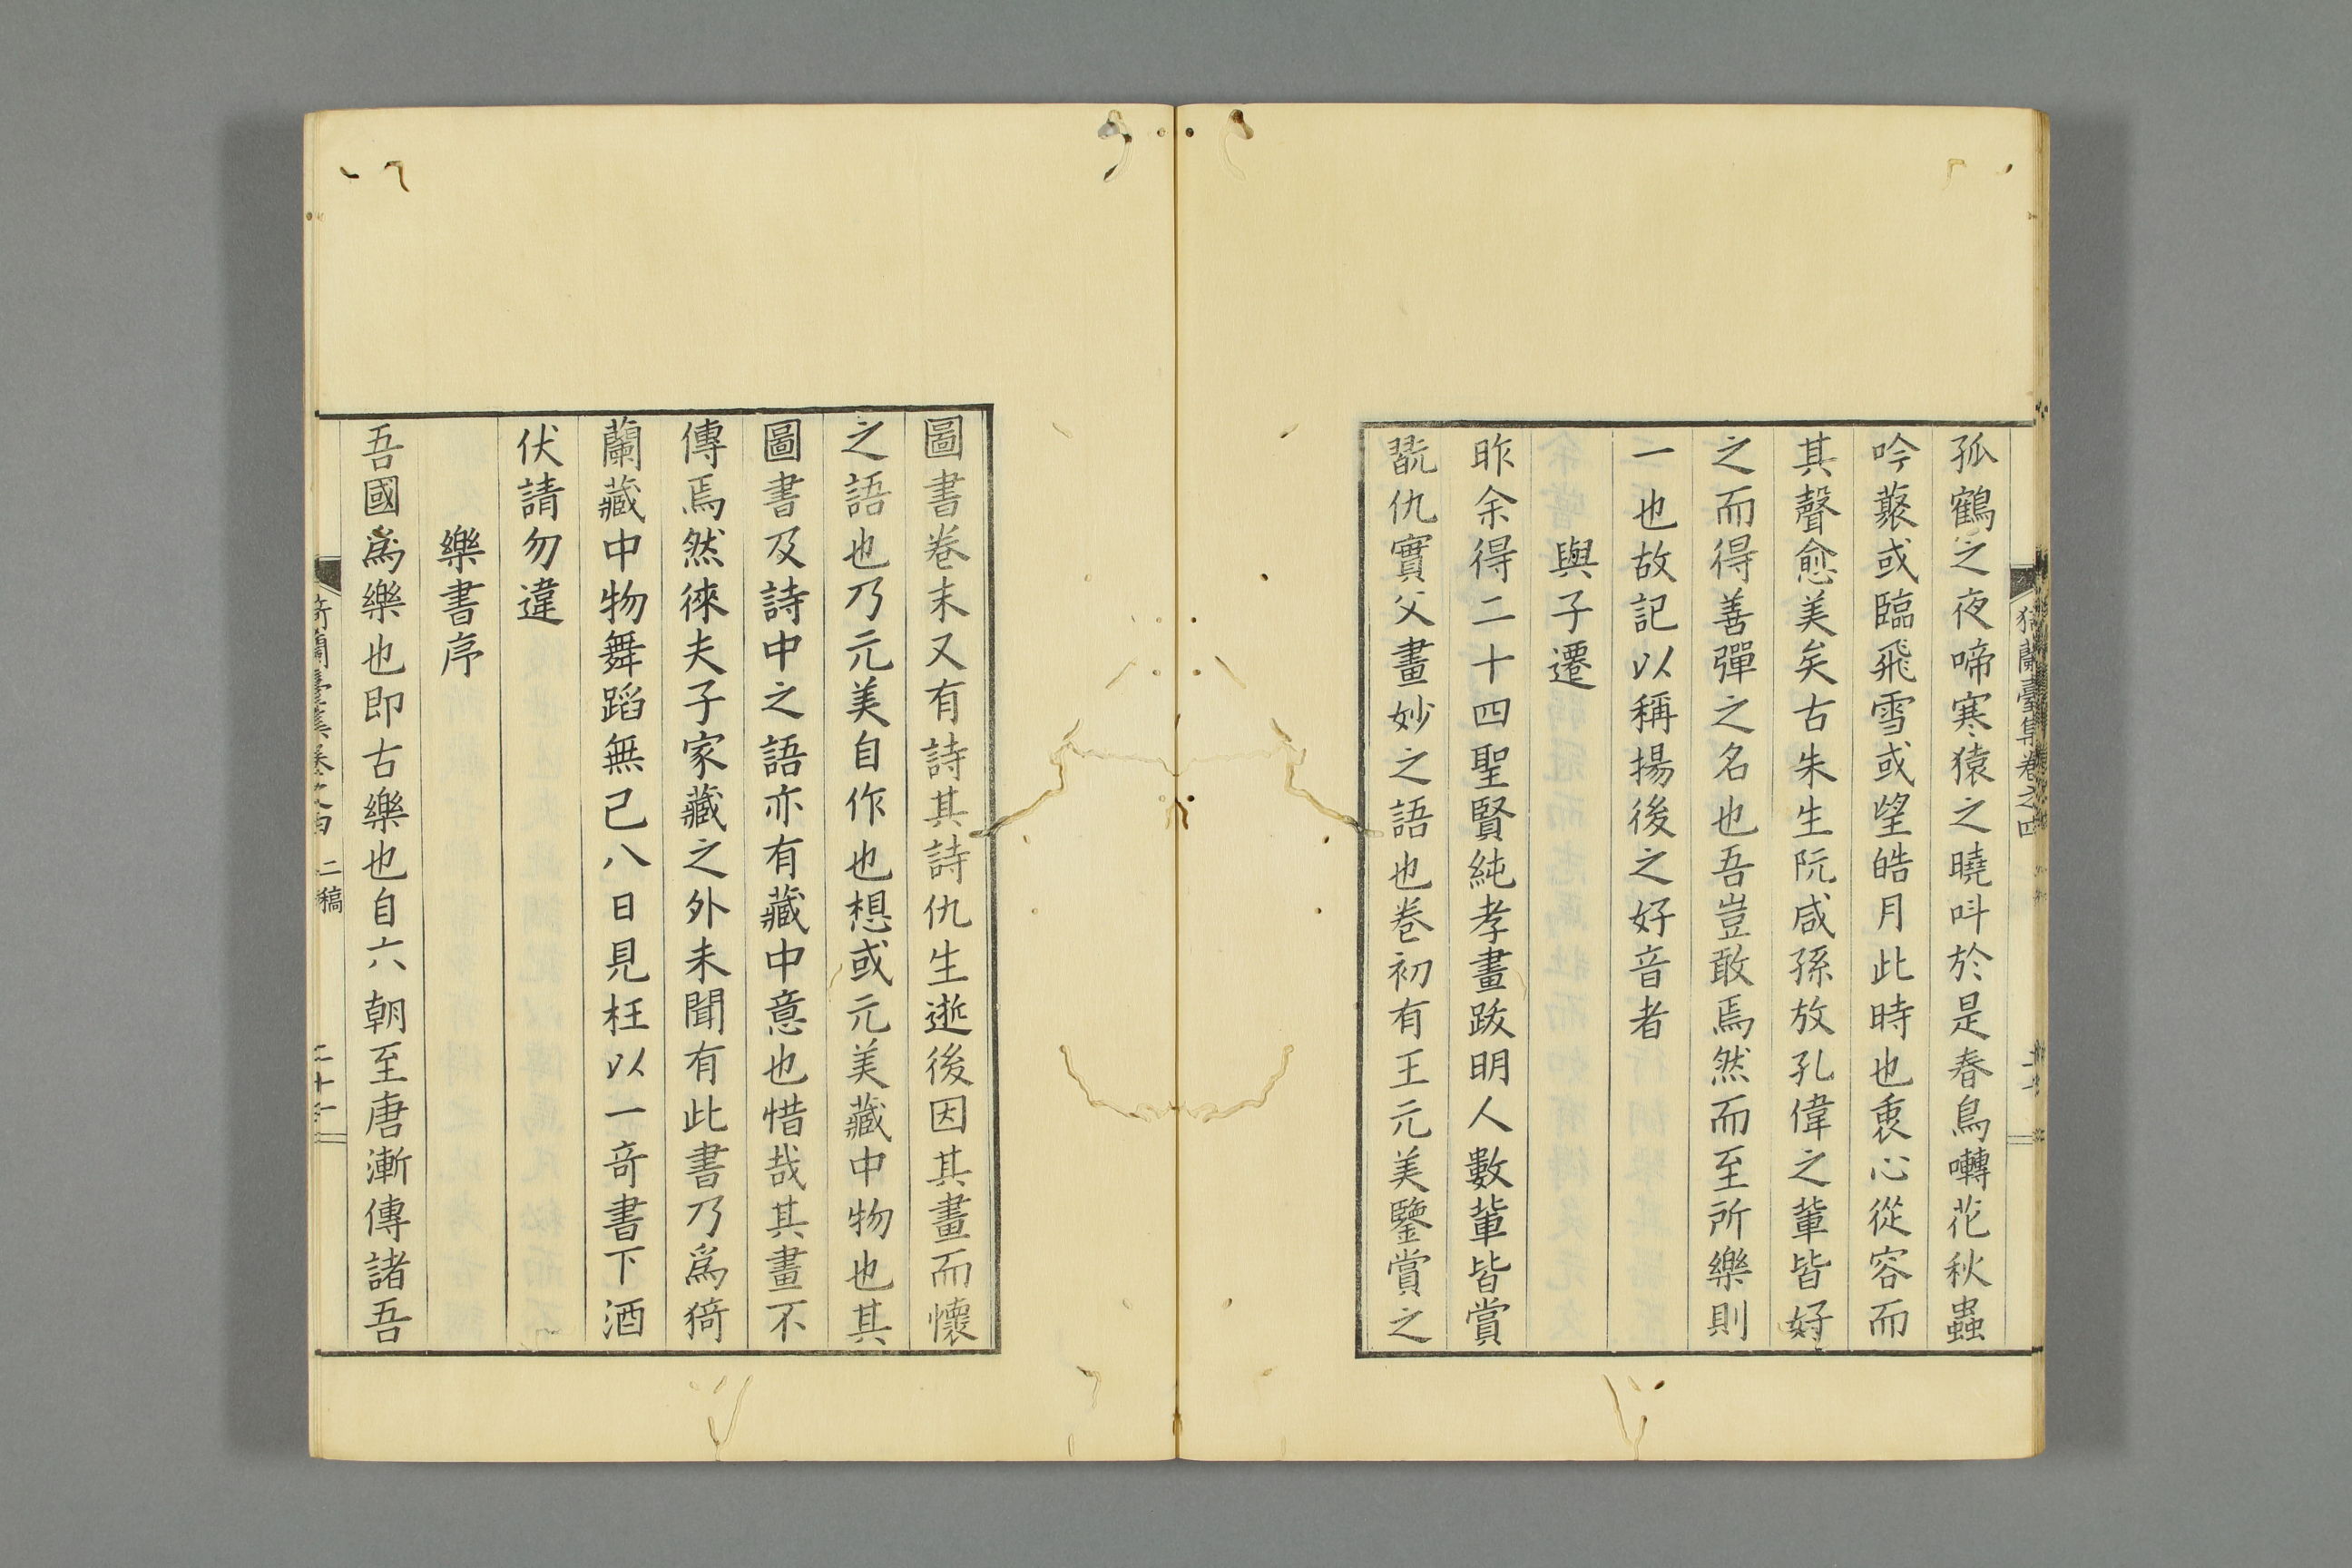 猗蘭臺集卷之四
孤鶴之夜啼寒猿之曉叫於是春鳥囀花秋蟲
吟藂或臨飛雪或望皓月此時也衷心從容而
其聲愈美矣古朱生阮咸孫放孔偉之輩皆好
之而得善彈之名也吾豈敢焉然而至所樂則
一也故記以稱揚後之好音者
與子遷
昨余得二十四聖賢純孝畫跋明人數輩皆賞
翫仇實父畫妙之語也卷初有王元美鑒賞之
圖書卷末又有詩其詩仇生逝後因其畫而懷
之語也乃元美自作也想或元美藏中物也其
圖書及詩中之語亦有藏中意也惜哉其畫不
傳焉然徠夫子家藏之外未聞有此書乃爲猗
蘭藏中物舞蹈無已八日見枉以一奇書下酒
伏請勿違
樂書序
吾國爲樂也即古樂也自六朝至唐漸傳諸吾
猗蘭臺集卷之四 二稿